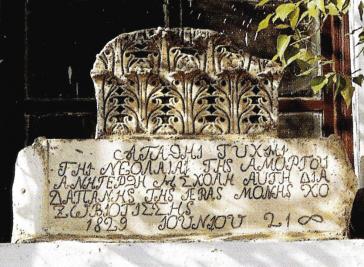 ΑΓΑΘΗΙ ΤΥΧΗΙ
ΤΗΙ ΝΕΟΛΑΙΑΙ ΤΗΣ ΑΜΟΡΓΟΥ
ΑΝΗΓΕΡΘΗ Η ΣΧΟΛΗ ΑΥΤΗ ΔΙΑ
ΔΑΠΑΝΗΣ ΤΗΣ ΙΕΡΑΣ ΜΟΝΗΣ ΧΟ
ΖΟΒΙΟΤΙΣΣΗΣ
1829 ΙΟΥΝΙΟΥ 21